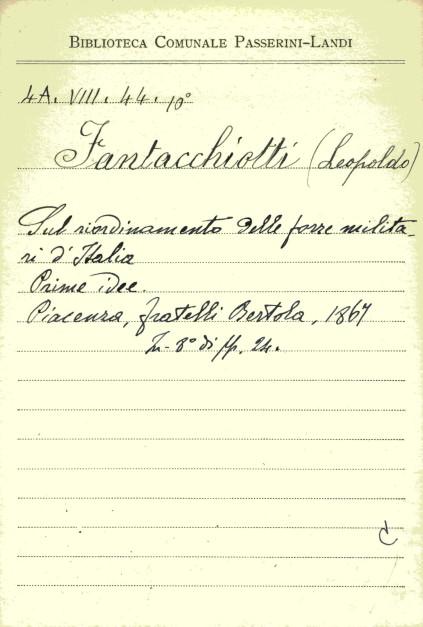 BIBLIOTECA COMUNALE PASSERINI-LANDI
4A. VIII. 44. 10°
Fantacchiotti (Leopoldo)
Sul riordinamento delle forze milita-
ri d'Italia
Prime idee.
Piacenza, fratelli Bertola, 1867
In-8° di pp. 24.
C